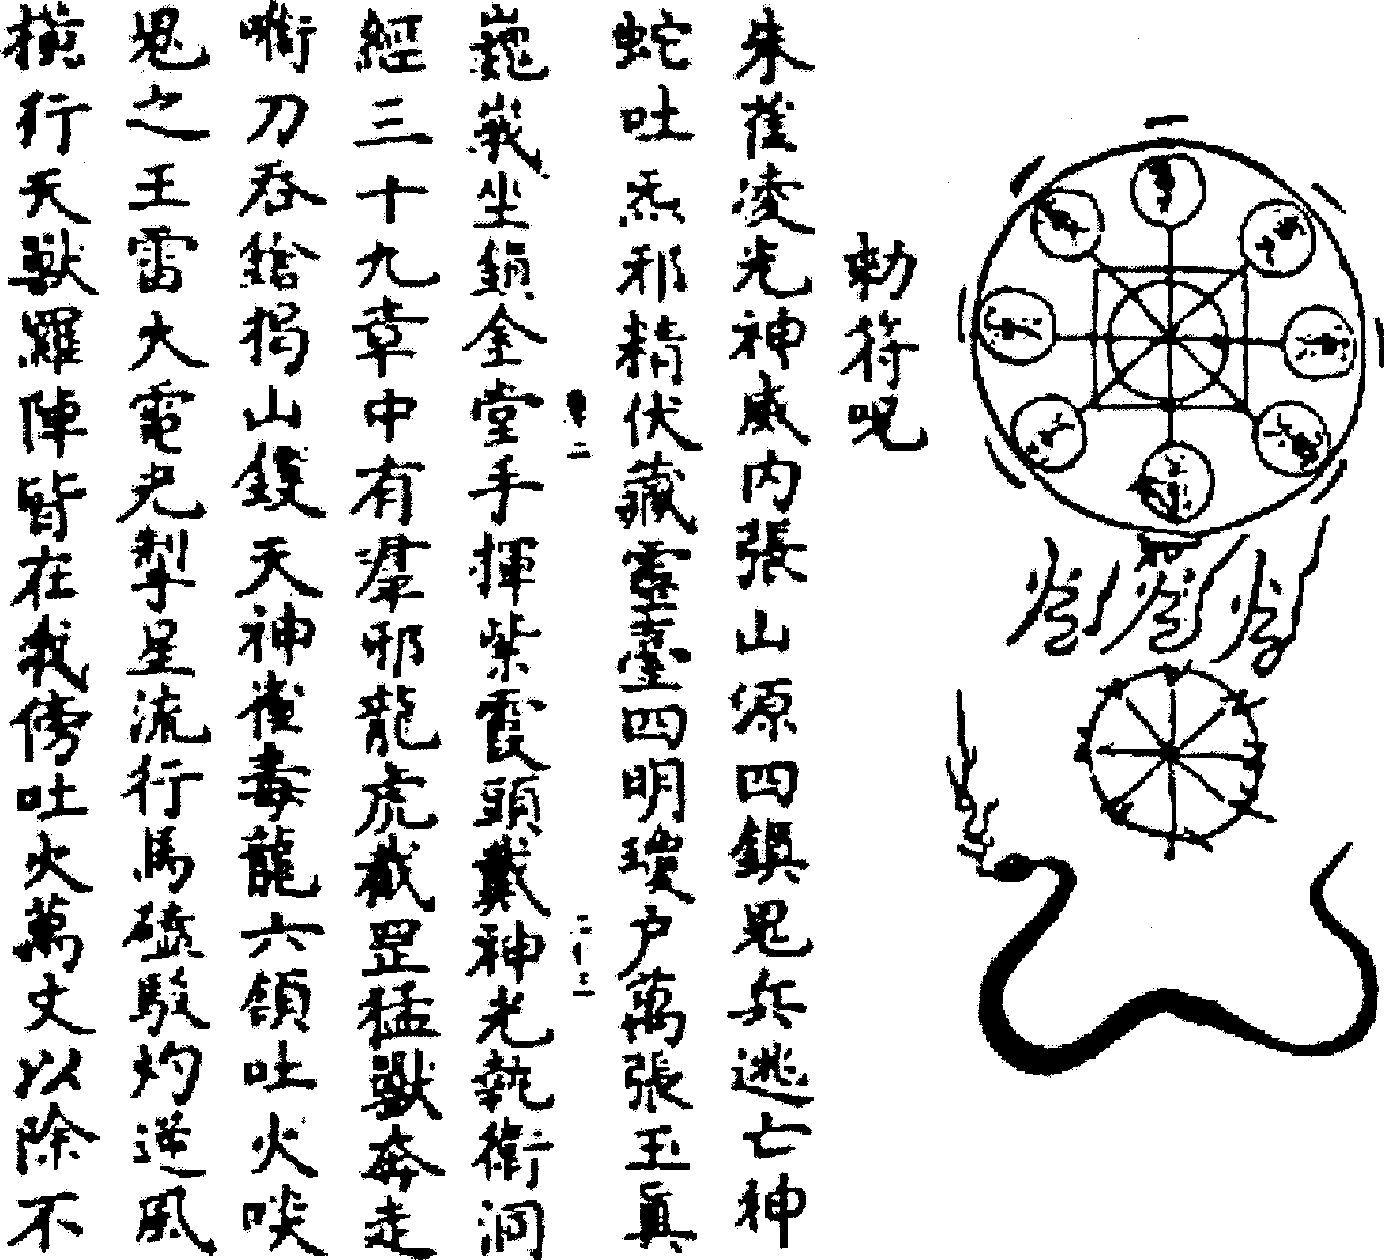 勅符呪
朱雀凌光神威内張山源四鎮鬼兵逃亡神
蛇吐炁邪精伏藏靈臺四明瓊户萬張玉真
巍峩坐鎖金堂手揮紫霞頭戴神光執衛洞
經三十九章中有羣邪龍虎截罡猛獸奔走
㘅刀吞鎗揭山钁天神雀毒龍六領吐火啖
鬼之王雷火電光掣星流行馬磕駮灼逆風
橫行天獸羅陣皆在我傍吐火萬丈以除不